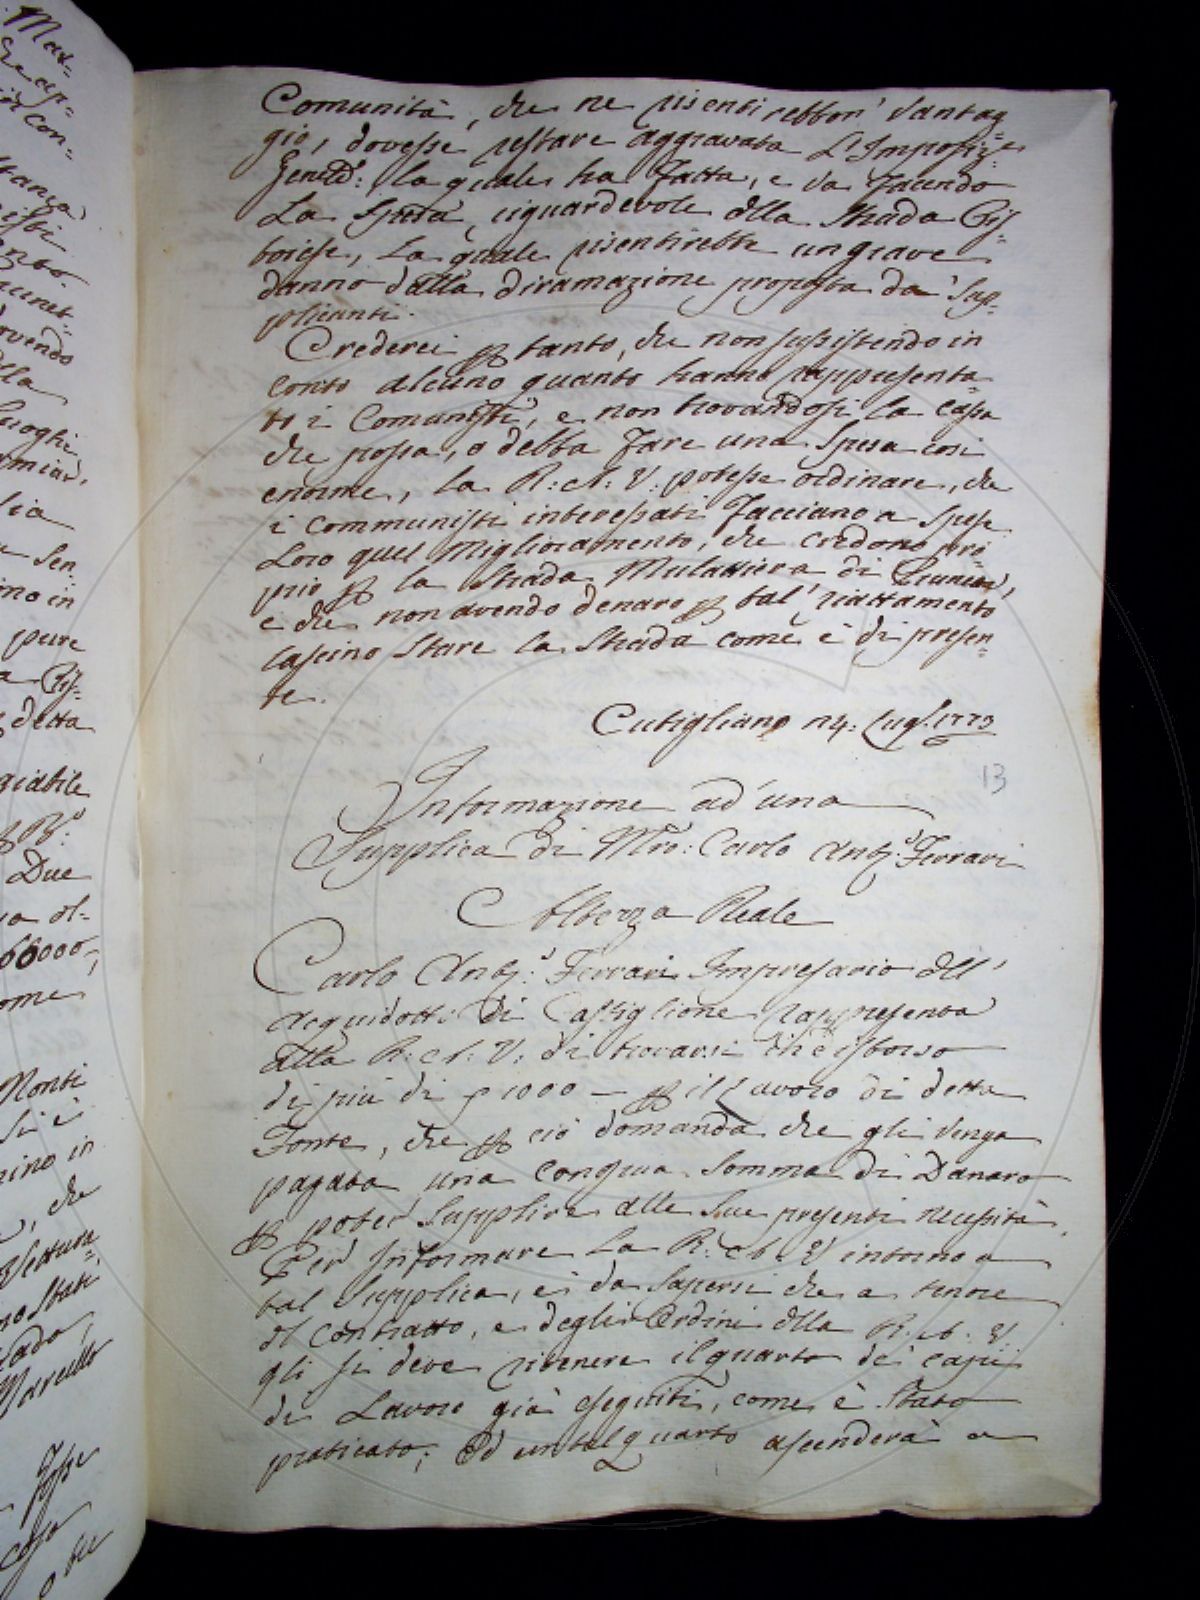 Comunità, che ne risentirebbon' vantag
gio, dovesse restare aggravata L'Imposiz:e
Genle: la quale ha fatta, e va facendo
La Spesa, riguardevole della Strada Pis=
toiese, La quale risentirebbe un grave
danno dalla diramazione proposta da' Sup=
plicanti.
Crederei p tanto, che non sussistendo in
conto alcuno quanto hanno rappresenta=
to i Comunisti, e non trovandosi la cassa
che possa, o debba fare una Spesa così
enorme, la R: A: V: potesse ordinare, che
i communisti interessati facciano a Spese
Loro quel Miglioramento, che credono pro
prio p la Strada Mulattiera di
e che non avendo denaro p tal' riattamento
lascino Stare la Strada come è di presen=
te.
Cutigliano 14: Lug: 1773
13
Informazione ad' una
Supplica di Mro: Carlo Ant:o Ferrari
Altezza Reale
Carlo Ant:o Ferrari Impresario dell'
Acquidotti di Castiglione rappresenta
alla R: A: V: di trovarsi in isborso
di più di 1000 — p il Lavoro di detta
Fonte, che p ciò domanda che gli venga
pagata una congrua Somma di Danaro
p poter Supplire alle Sue presenti necessità.
Per Informare La R: A: V intorno a
tal Supplica, è da Sapersi che a tenore
del Contratto, e degli Ordini della R. A. V.
gli si deve ritenere il quarto de' capi
di Lavoro già eseguiti, come è Stato
praticato; Ed un tal quarto ascenderà a